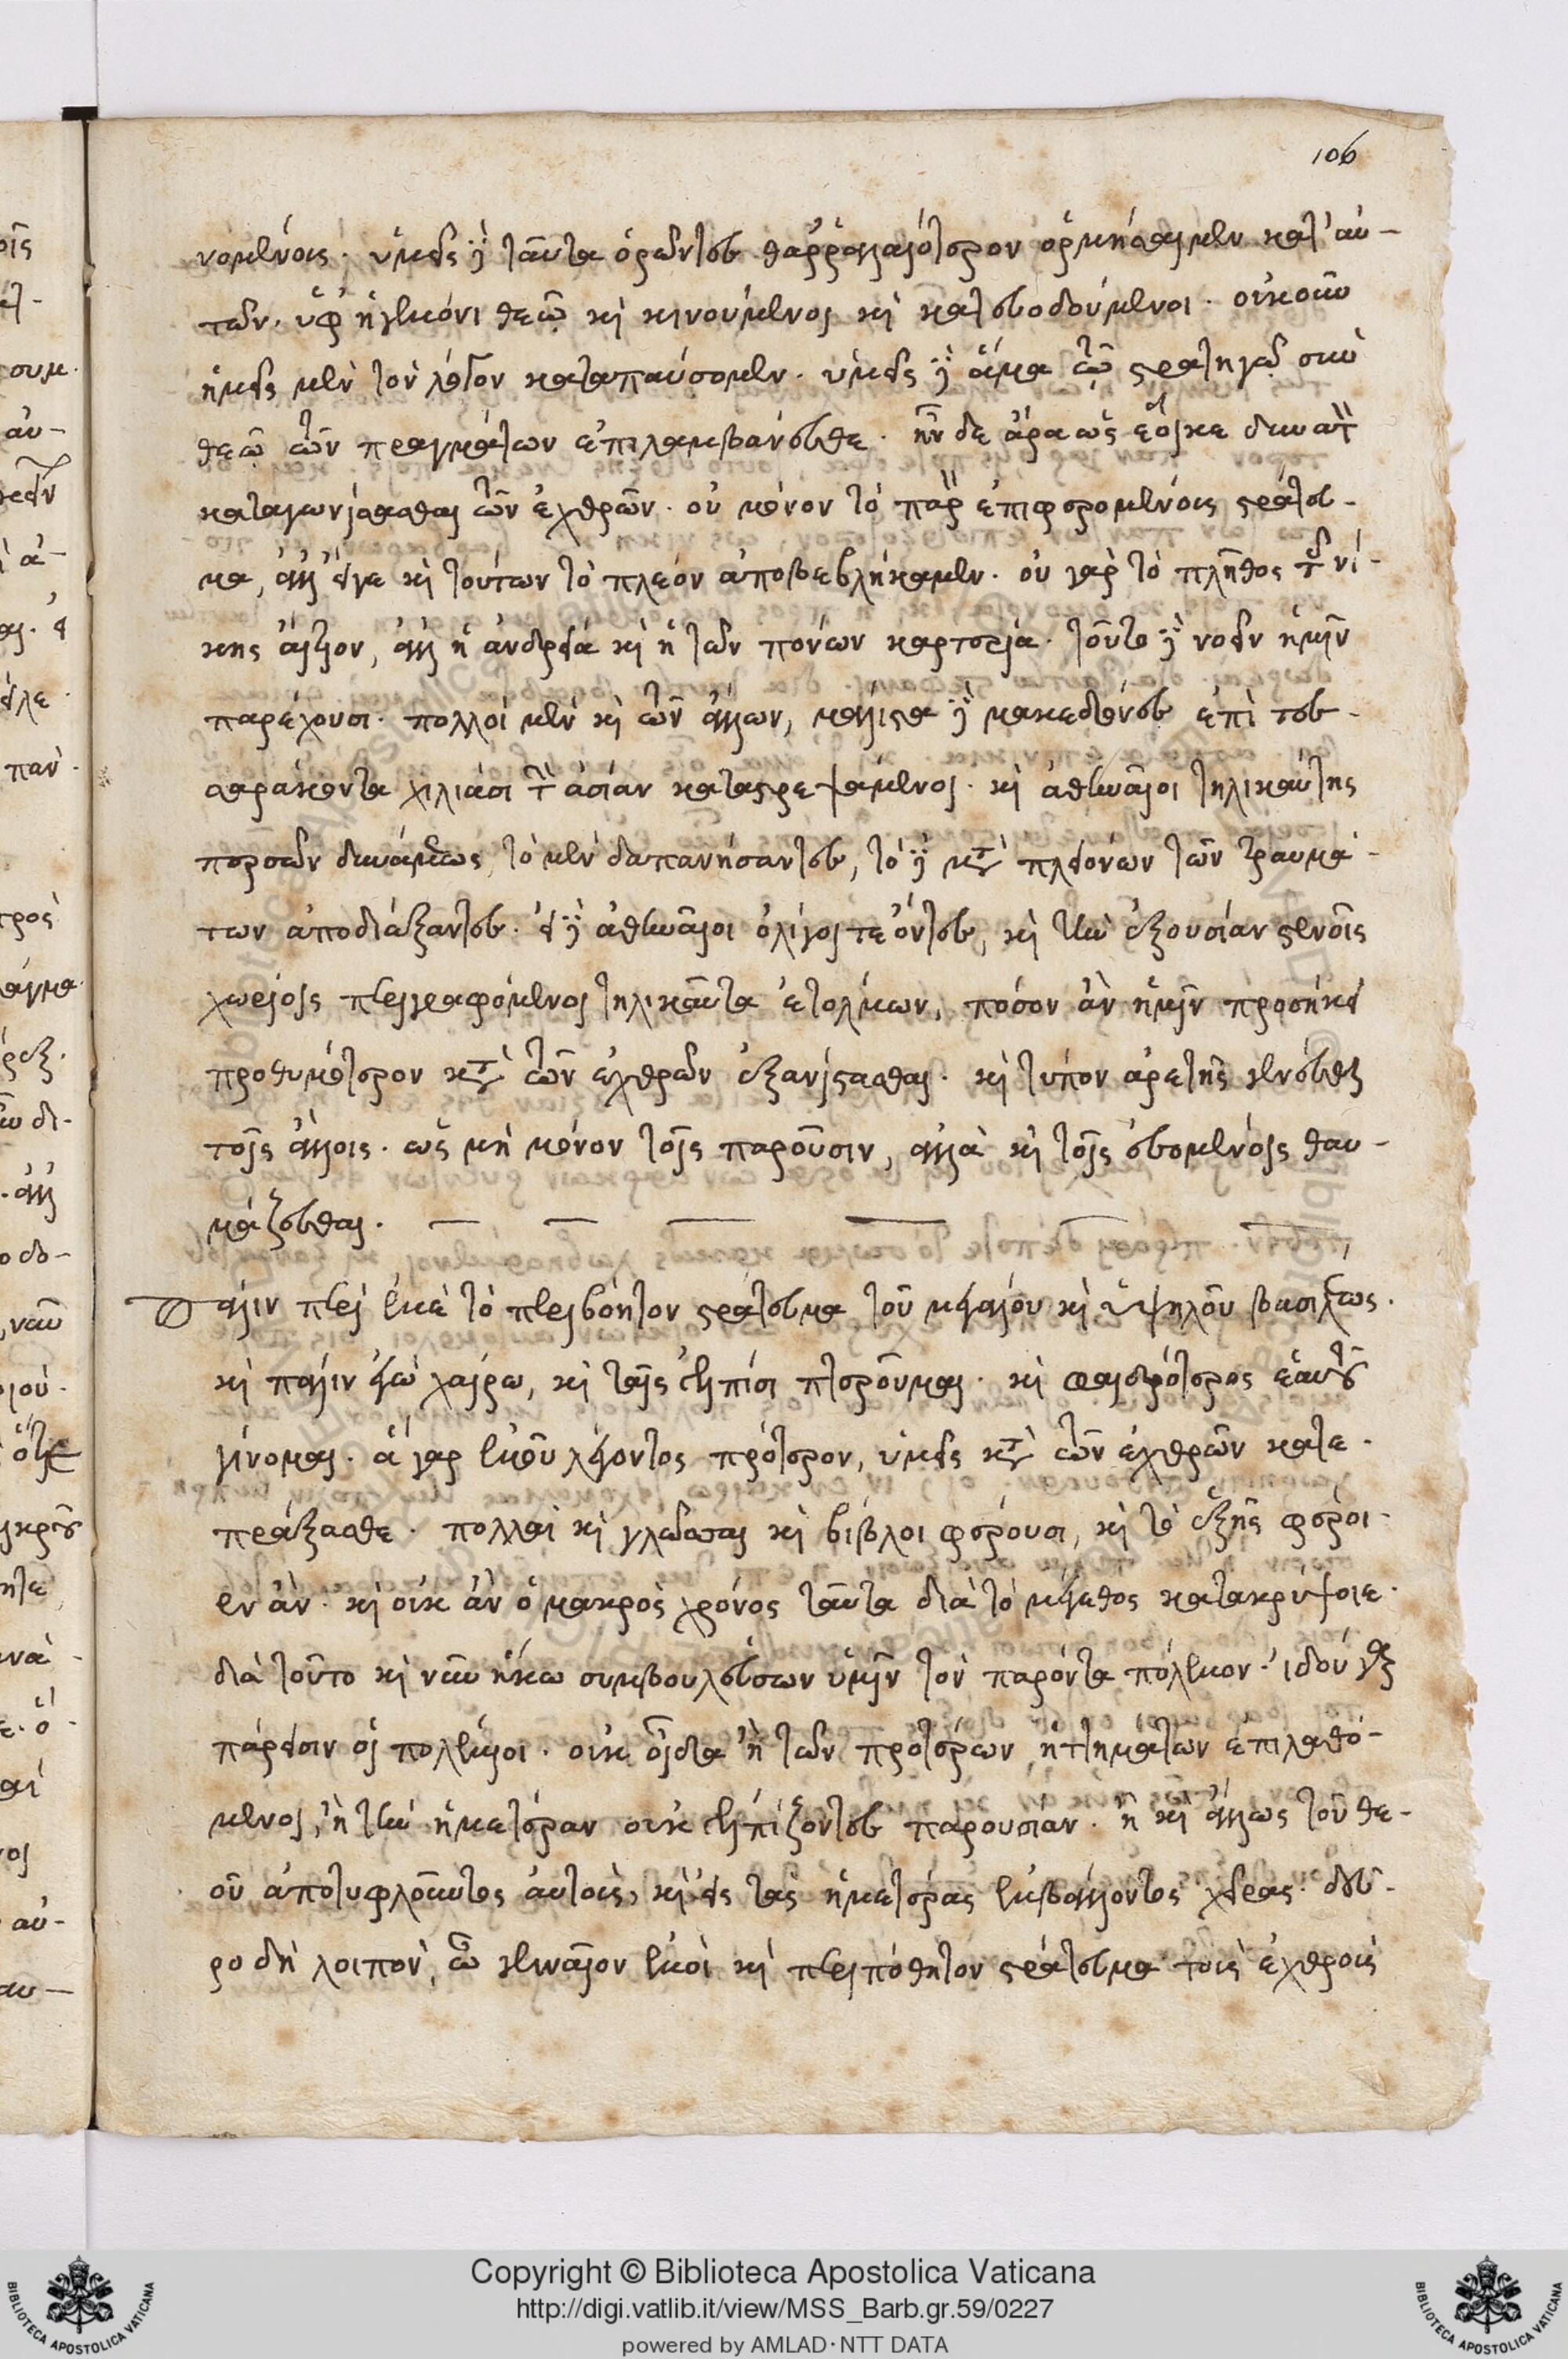 106
νομένοις. ὑμεῖς δὲ ταῦτα ὁρῶντες θαρραλαιότερον ὁρμήσαιμεν κατ' αὐ-
τῶν. ὑφ' ἡγεμόνι θεῶ καὶ κινούμενοι καὶ κατευοδούμενοι. οὐκοῦν
ἡμεῖς μὲν τὸν λόγον καταπαύσομεν. ὑμεῖς δὲ ἅμα τῶ στρατηγῶ σὺν
θεῶ τῶν πραγμάτων ἐπιλαμβάνεσθε. ἦν δε ἄρα ὡς ἔοικε δυνατὸν
καταγωνίσασθαι τῶν ἐχθρῶν. οὐ μόνον τὸ παρ' ἐπιφερομένοις στράτευ-
μα, ἀλλ' εἴγε καὶ τούτων τὸ πλέον ἀποβεβλήκαμεν. οὐ γὰρ τὸ πλῆθος τῆς νί-
κης αἴτιον, ἀλλ' ἡ ἀνδρεία καὶ ἡ τῶν πόνων καρτερία. τοῦτο δὲ νοεῖν ἡμῖν
παρέχουσι. πολλοὶ μὲν καὶ τῶν ἄλλων, μάλιστα δὲ μακεδόνες ἐπὶ τεσ-
σαράκοντα χιλιάσι τὴν ἀσίαν καταστρεψάμενοι. καὶ ἀθηναῖοι τηλικαύτης
περσῶν δυνάμεως, τὸ μὲν δαπανήσαντες, τὸ δὲ μετὰ πλειόνων τῶν τραυμά-
των ἀποδιάξαντες. εἰ δὲ ἀθηναῖοι ὀλίγοι τε ὄντες, καὶ τὴν ἐξουσίαν στενοῖς
χωρίοις περιγραφόμενοι τηλικαῦτα ἐτόλμων, πόσον ἂν ἡμῖν προσήκει
προθυμότερον κατὰ τῶν ἐχθρῶν ἐξανίστασθαι. καὶ τύπον ἀρετῆς γενέσθαι
τοῖς ἄλλοις. ὡς μὴ μόνον τοῖς παροῦσιν, ἀλλὰ καὶ τοῖς ἐσομένοις θαυ-
μάζεσθαι.
Πάλιν περὶ ἐμὲ τὸ περιβόητον στράτευμα τοῦ μεγάλου καὶ ὑψηλοῦ βασιλέως.
καὶ πάλιν ἐγὼ χαίρω, καὶ ταῖς ἐλπίσι πτεροῦμαι. καὶ φαιδρότερος ἑαυτοῦ
γίνομαι. ἃ γαρ ἐμοῦ λέγοντος πρότερον, ὑμεῖς κατὰ τῶν ἐχθρῶν κατε-
πράξασθε. πολλαὶ καὶ γλῶσσαι καὶ βίβλοι φέρουσι, καὶ τὸ ἑξῆς φέροι-
εν ἄν. καὶ οὐκ ἂν ὁ μακρὸς χρόνος ταῦτα διὰ τὸ μέγεθος κατακρύψοιε.
διὰ τοῦτο καὶ νῦν ἥκω συμβουλεύσων ὑμῖν τὸν παρόντα πόλεμον. ἰδού γαρ
πάρεισιν οἱ πολέμιοι. οὐκ οἶδα ἢ τῶν προτέρων ἡττημάτων ἐπιλαθό-
μενοι, ἢ τὴν ἡμετέραν οὐκ ἐλπίζοντες παρουσίαν. ἢ καὶ ἄλλως τοῦ θε-
οῦ ἀποτυφλοῦντος αὐτοὺς, καὶ εἰς τὰς ἡμετέρας ἐμβάλλοντος χεῖρας. δεῦ-
ρο δὴ λοιπὸν, ὦ γενναῖον ἐμοὶ καὶ περιπόθητον στράτευμα τοῖς ἐχθροῖς
Copyright © Biblioteca Apostolica Vaticana
http://digi.vatlib.it/view/MSS_Barb.gr.59/0227
powered by AMLAD·NTT DATA
BIBLIOTECA APOSTOLICA VATICANA
BIBLIOTECA APOSTOLICA VATICANA